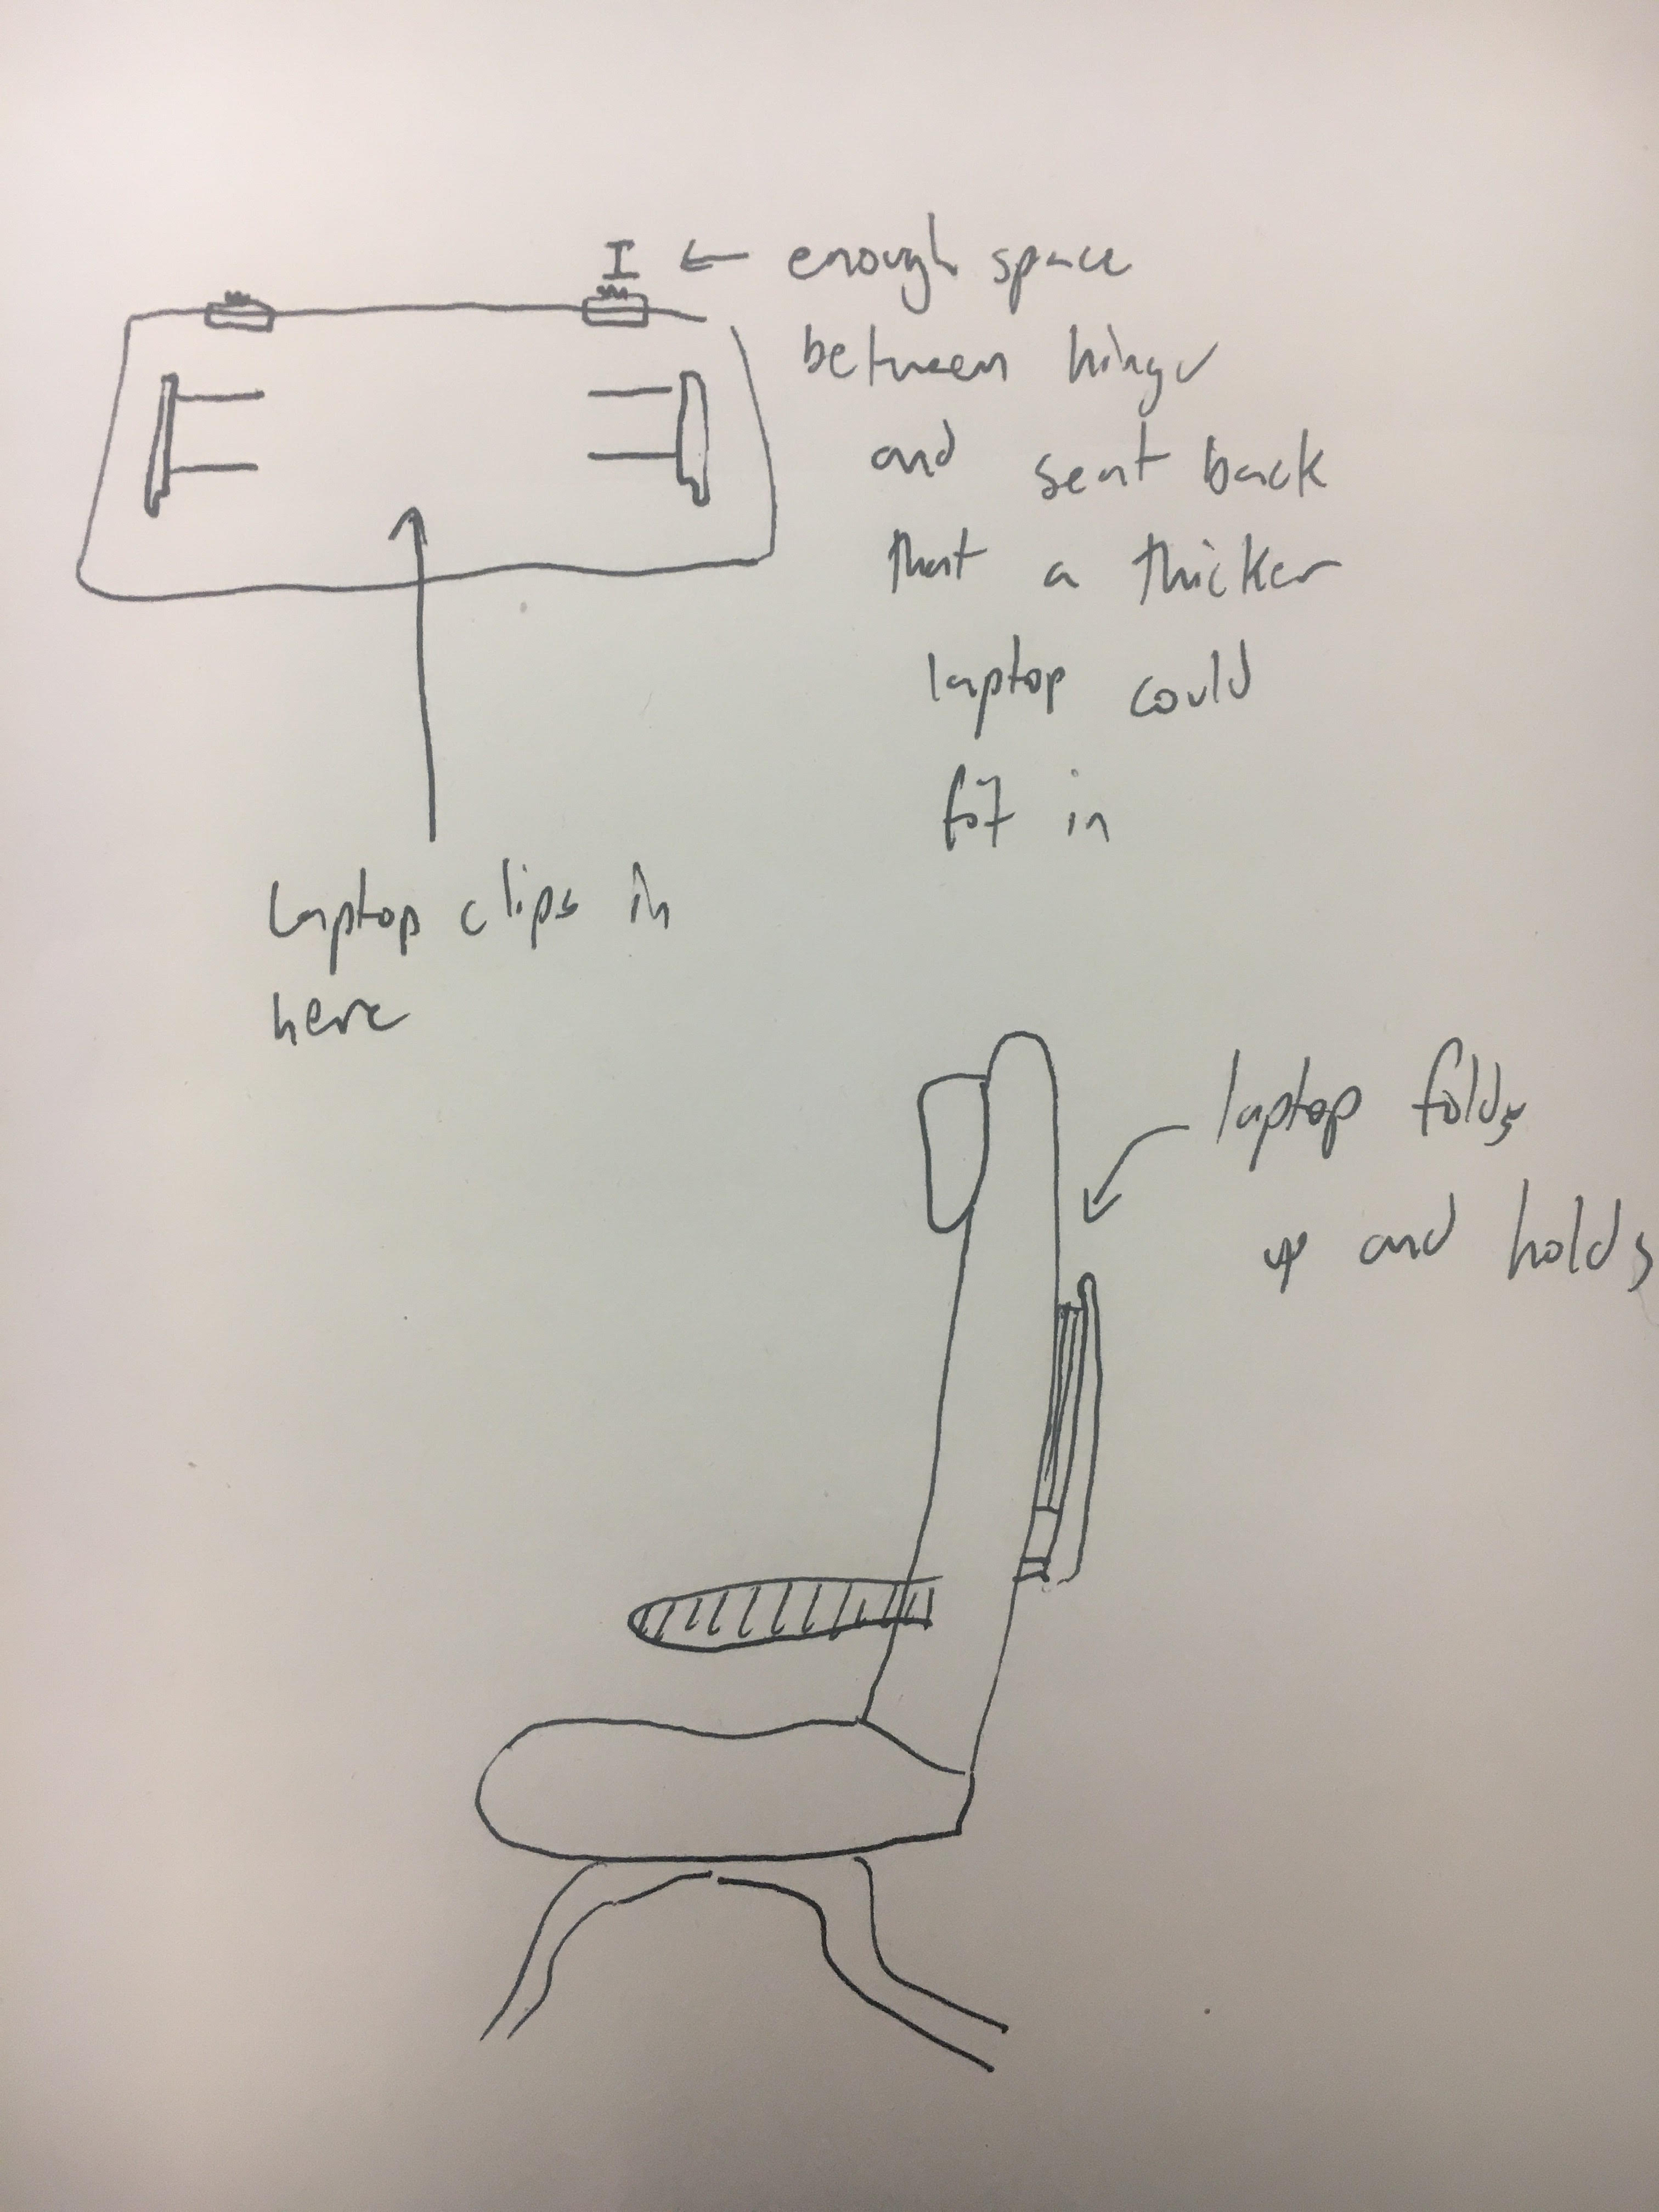 enough space
between hinge
and seat back
that a thicker
laptop could
fit in
Laptop clips in
here
laptop folds
up and holds